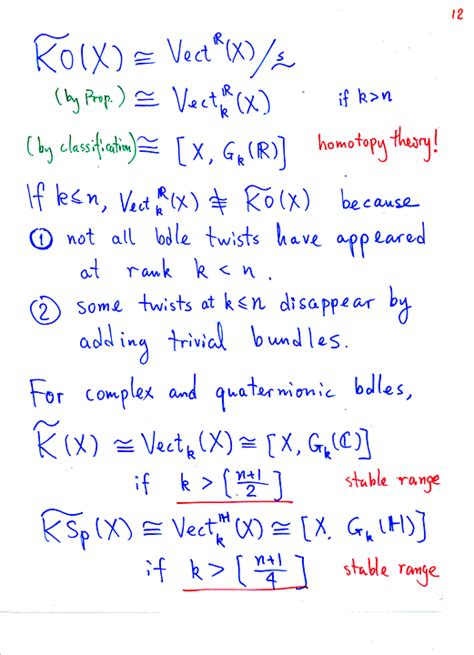 12
K̃O(X) ≅ Vect^ℝ(X)/~s
(by Prop.) ≅ Vect_k^ℝ(X) if k>n
(by classification) ≅ [X, G_k(ℝ)] homotopy theory!
If k≤n, Vect_k^ℝ(X) ≇ K̃O(X) because
① not all bdle twists have appeared
at rank k < n.
② some twists at k≤n disappear by
adding trivial bundles.
For complex and quaternionic bdles,
K̃(X) ≅ Vect_k(X) ≅ [X, G_k(ℂ)]
if k > [n+1/2] stable range
K̃Sp(X) ≅ Vect_k^ℍ(X) ≅ [X, G_k(ℍ)]
if k > [n+1/4] stable range